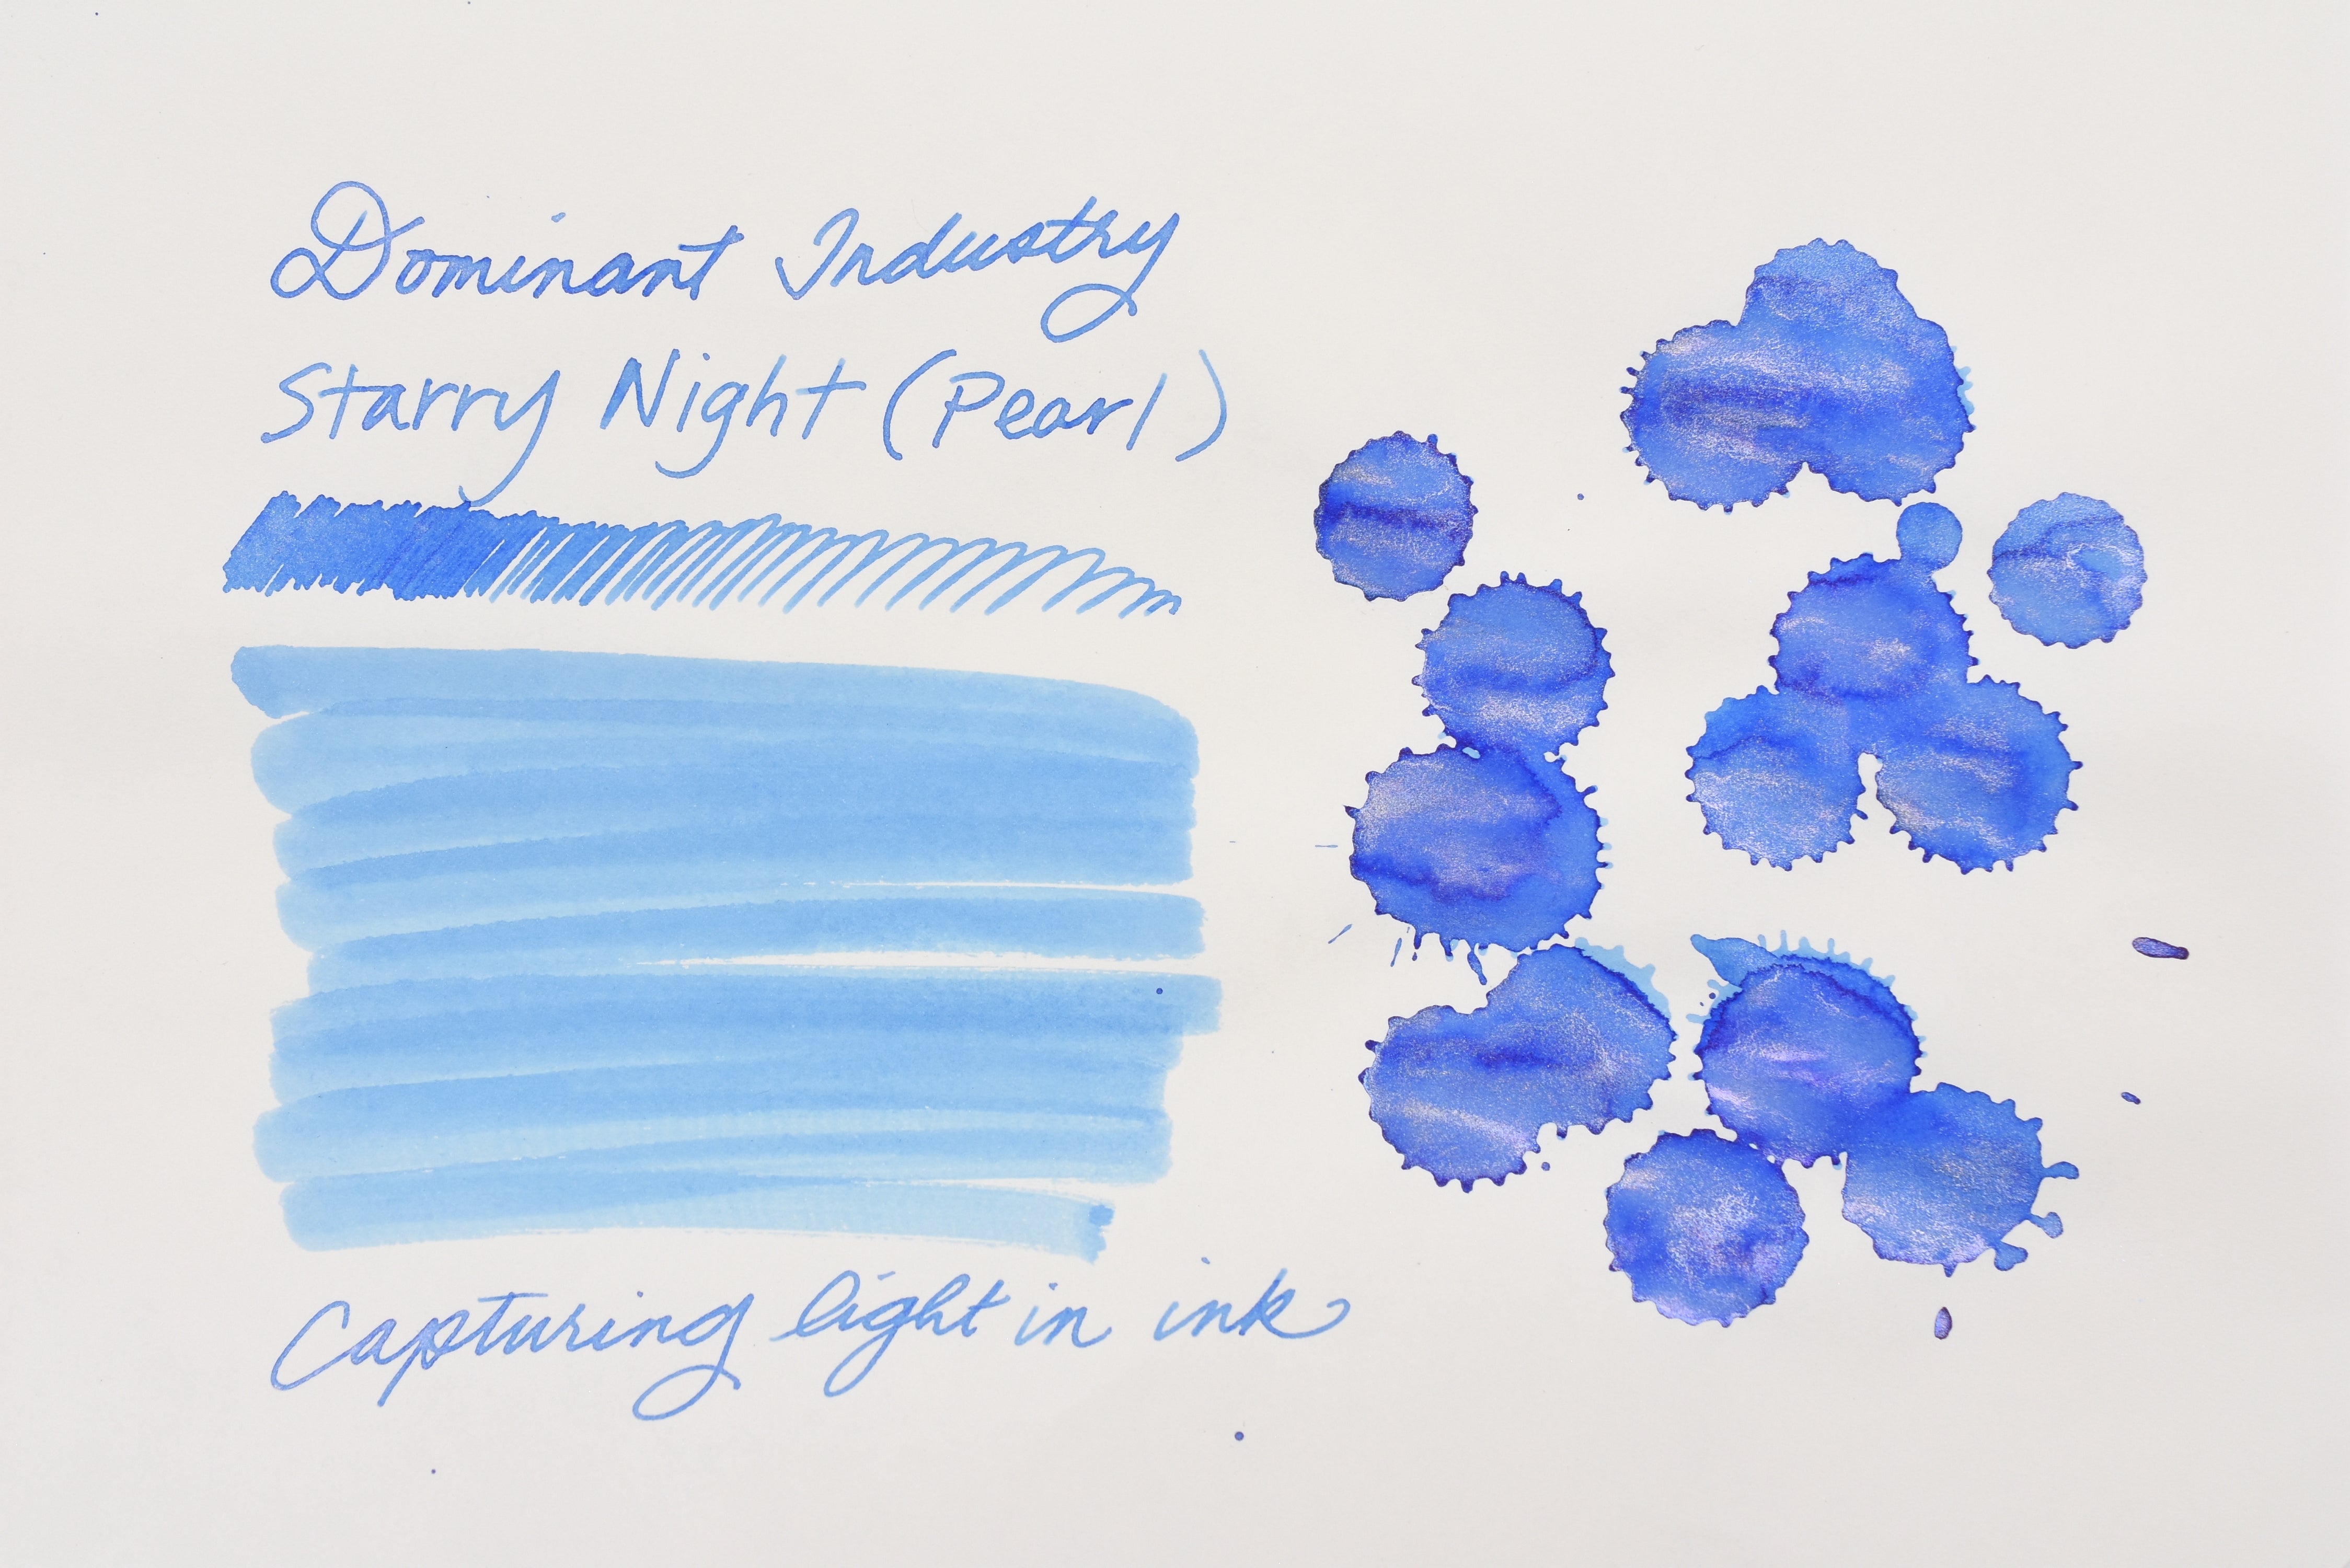 Dominant Industry
Starry Night (Pearl)
Capturing light in ink